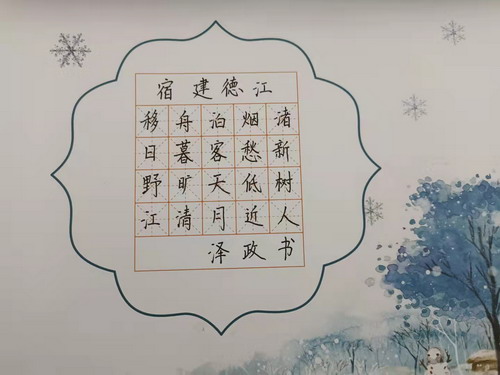 宿建德江
移舟泊烟渚
日暮客愁新
野旷天低树
江清月近人
泽政书